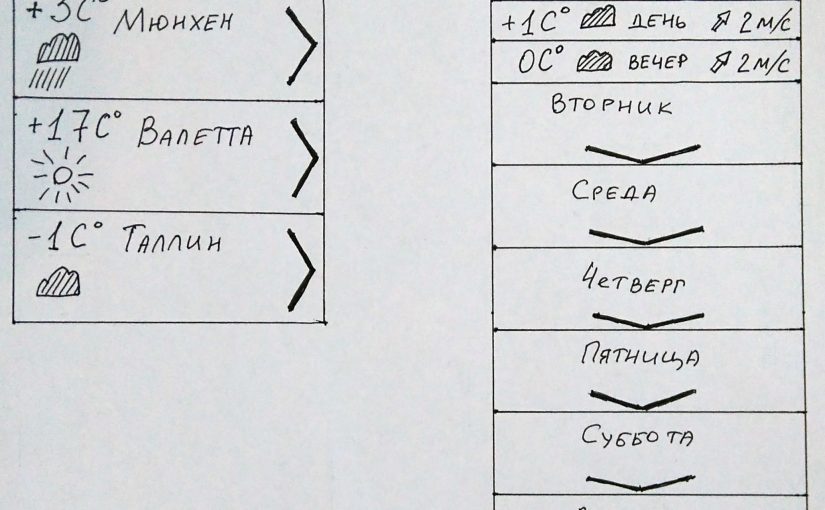 +3C° Мюнхен
+17C° Валетта
-1C° Таллин
+1C° день 2 м/с
0C° вечер 2 м/с
Вторник
Среда
Четверг
Пятница
Суббота